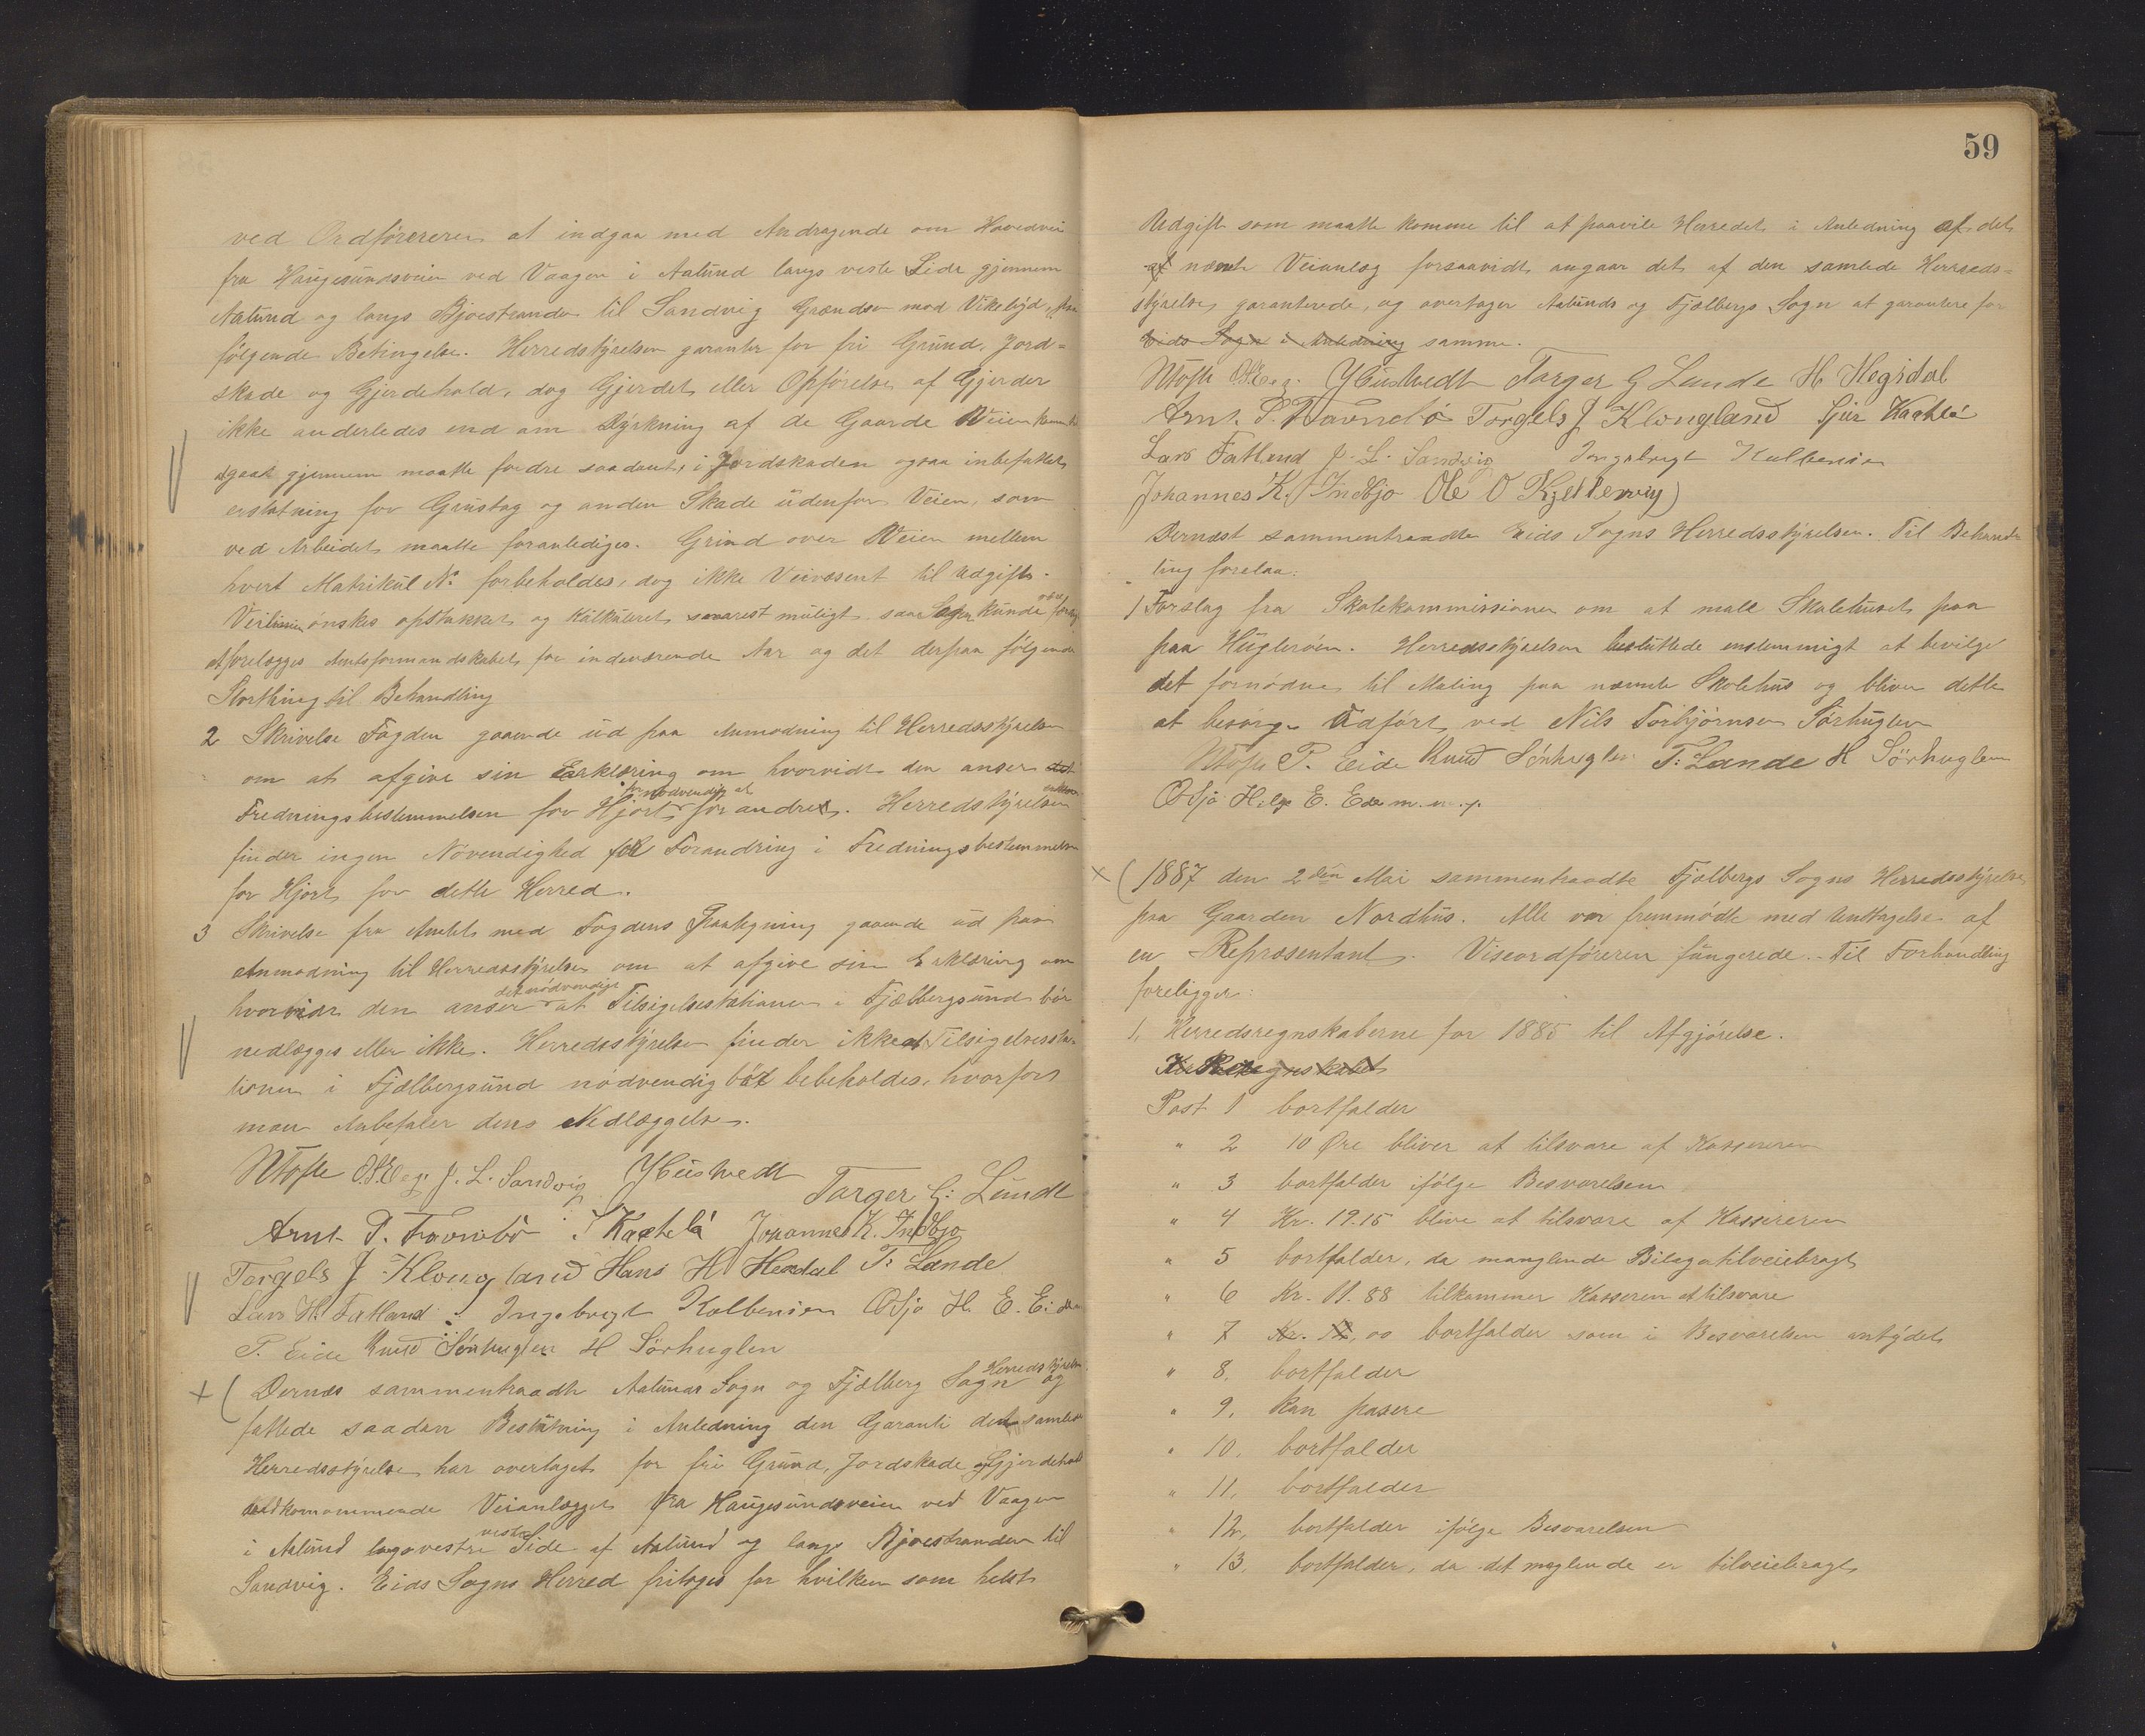 ved Ordførereren at indgaa med Andragende om Hovedvei
fra Haugesundsveien ved Vaagen i Aalund langs veste Side gjennem
Aalund og langs Bjoestranden til Sandvig Grændse mod Vikebygd, paa
følgende Betingelse. Herredstyrelsen garanter for fri Grund, Jord=
skade og Gjerdehold, dog Gjerdet eller Opførelse af Gjerder
ikke anderledes end om Dyrkning af de Gaarde Veien
gaar gjennem maatte fordre saadant, i Jordskaden ogsaa inbefattet
erstatning for Grustag og anden Skade udenfor Veien, som
ved Arbeidet maatte foranlediges. Grind over Veien mellem
hvert Matrikul No forbeholdes, dog ikke Veivæsent til Udgift.
Veilinien ønskes opstukket og kalkuleret snarest muligt saa Sagen kunde
at forelægges Amtsformandskabet for indeværende Aar og det derpaa følgende
Storthing til Behandling
2 Skrivelse Fogden gaaende ud paa Anmodning til Herredsstyrelsen
om at afgive sin Erklæring om hvorvidt den anser det
fornødvendig at
Fredningsbestemmelsen for Hjort forandres. Herredstyrelsen
finder ingen Nøvendighed for Forandring i Fredningsbestemmelsen
for Hjort for dette Herred.
3 Skrivelse fra Amtet med Fogdens Paategning gaaende ud paa
Anmodning til Herredsstyrelsen om at afgive sin Erklæring om
det nødvendige
hvorvidt den anser at Tilsigelsesstationen i Fjælbergsund bør
nedlægges eller ikke. Herredsstyrelsen finder ikke at Tilsigelsessta-
tionen i Fjælbergsund nødvendig bør bebeholdes, hvorfor
man Anbefaler dens Nedlæggelse.
J. L. Sandvig Y Hustvedt
Torger G. Lunde
Arnt P. Tavnebø S Kaatelå Johannes K. Indbjo
Torgels J Klongland Hans H Hegdal T. Lande
Lars H. Fatland Ingebregt Kolbensen Osjo H. E. Eide
P. Eide Knud Sørhuglen H Sørhuglen
+ ( Dernæs sammentraadte Aalunds Sogn og Fjælberg Sogn Herredstyrelse og
fattede saadan Beslutning i Anledning den Garanti den samlede
Herredsstyrelse har overtaget for fri Grund, Jordskade og Gjerdehold
vedkomommende Veianlægget fra Haugesundsveien ved Vaagen
veste
i Aalund langs vestre Side af Aalund og langs Bjoestranden til
Sandvig. Eids Sogns Herred fritages for hvilken som helst
59
Udgift som maatte komme til at paavile Herredet i Anledning af det
af nævnte Veianlæg forsaavidt angaar det af den samlede Herreds=
styrelse garanterede, og overtager Aalunds og Fjælbergs Sogn at garantere for
Eids Sogn i Anledning samme.
Y Hustvedt Torger G Lunde H Hegdal
Arnt. P. Tavnebø Torgels J Klongland Sjur Kaatelå
Lars Fatland J. L. Sandvig Ingebregt Kolbensen
Johannes K. Indbjo Ole O Kjellesvig)
Dernæst sammentraadte Eids Sogns Herredsstyrelsen. Til Behand-
ling forelaa.
1 Forslag fra Skolekommissionen om at male Skolehuset paa
paa Huglerøen. Herredsstyrelsen besluttede enstemmigt at bevilge
det fornødne til Maling paa nævnte Skolehus og bliver dette
at besørge Udført ved Nils Torbjørnsen Sørhuglen
P. Eide Knud Sørhuglen T. Lande H Sørhuglen
Osjo H. E. Eide m.n.p.
× ( 1887 den 2den Mai sammentraadte Fjælbergs Sogns Herredsstyrelse
paa Gaarden Nordhus. Alle var fremmødte med Unttagelse af
en Repræsentant. Viseordføreren fungerede. Til Forhandling
foreligger:
1, Herredsregnskaberne for 1885 til Afgjørelse.
Post 1 bortfalder
" 2 10 Øre bliver at tilsvare af Kassereren
" 3 bortfalder ifølge Besvarelsen
" 4 Kr. 19.15 blive at tilsvare af Kassereren
" 5 bortfalder, da manglende Bilag er tilveiebragt
" 6 Kr. 11.88 tilkommer Kasseren at tilsvare
" 7 Kr. 12,00 bortfalder som i Besvarelsen antydet
" 8. bortfalder
" 9, kan pasere
" 10. bortfalder
" 11, bortfalder
" 12, bortfalder ifølge Besvarelsen
" 13, bortfalder, da det maglende er tilveiebragt